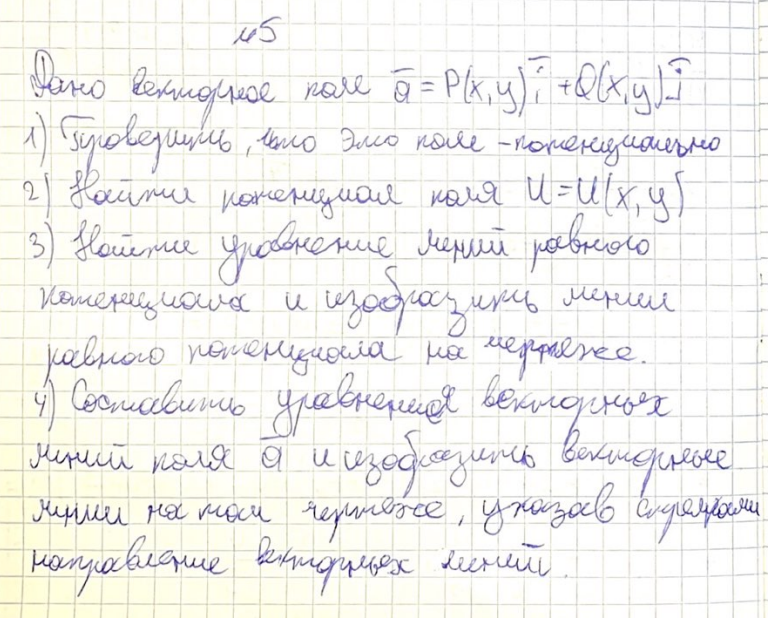 №5
Дано векторное поле ā = P(x,y) ī + Q(x,y) j̄
1) Проверить, что это поле - потенциально
2) Найти потенциал поля U = U(x,y)
3) Найти уравнение линий равного
потенциала и изобразить линии
равного потенциала на чертеже.
4) Составить уравнения векторных
линий поля ā и изобразить векторные
линии на том чертеже, указав стрелками
направление векторных линий.